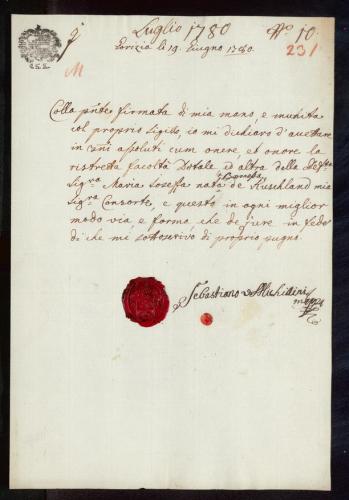 Luglio 1780 No 10.
Gorizia li 19. Giugno 1780.
231
M
Colla pnte firmata di mia mano, e munita
col proprio sigillo, io mi dichiaro d'accettare
in assoluti cum onere et onore la
ristretta facoltà Dotale ed altra della
Baronessa
Sigra Maria Joseffa nata de Ruschland mia
Sigra Consorte, e questo in ogni miglior
modo via e forma che de jure in fede
di che mi sottoscrivo di proprio pugno.
Sebastiano de
mpp